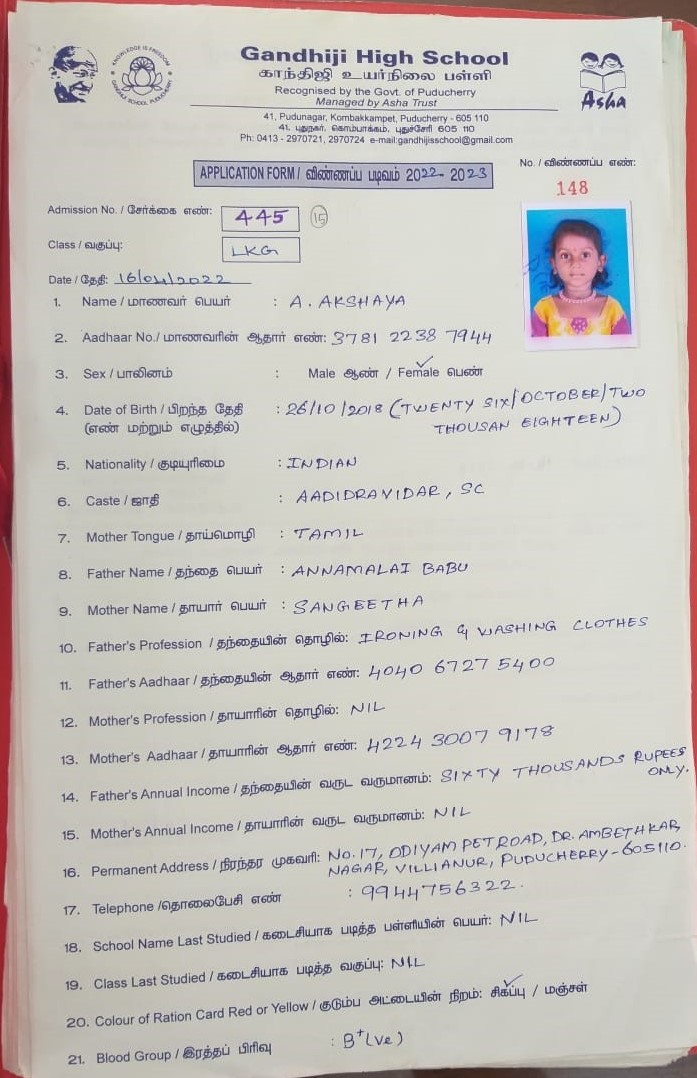 KNOWLEDGE IS FREEDOM
GANDHIJI SCHOOL PUDUCHERRY
Gandhiji High School
காந்திஜி உயர்நிலை பள்ளி
Recognised by the Govt. of Puducherry
Managed by Asha Trust
Asha
41, Pudunagar, Kombakkampet, Puducherry - 605 110
41. புதுநகர், கொம்பாக்கம், புதுச்சேரி 605 110
Ph: 0413 - 2970721, 2970724 e-mail:gandhijisschool@gmail.com
APPLICATION FORM / விண்ணப்ப படிவம் 2022 - 2023
No. / விண்ணப்ப எண்:
148
Admission No. / சேர்க்கை எண்: 445 15
Class / வகுப்பு: LKG
Date / தேதி: 16/04/2022
1. Name / மாணவர் பெயர் : A. AKSHAYA
2. Aadhaar No./ மாணவரின் ஆதார் எண்: 3781 2238 7944
3. Sex / பாலினம் : Male ஆண் / Female பெண்
4. Date of Birth / பிறந்த தேதி : 26/10/2018 (TWENTY SIX/OCTOBER/TWO
(எண் மற்றும் எழுத்தில்) THOUSAN EIGHTEEN)
5. Nationality / குடியுரிமை : INDIAN
6. Caste / ஜாதி : AADIDRAVIDAR, SC
7. Mother Tongue / தாய்மொழி : TAMIL
8. Father Name / தந்தை பெயர் : ANNAMALAI BABU
9. Mother Name / தாயார் பெயர் : SANGEETHA
10. Father's Profession / தந்தையின் தொழில்: IRONING & WASHING CLOTHES
11. Father's Aadhaar / தந்தையின் ஆதார் எண்: 4040 6727 5400
12. Mother's Profession / தாயாரின் தொழில்: NIL
13. Mother's Aadhaar / தாயாரின் ஆதார் எண்: 4224 3007 9178
14. Father's Annual Income / தந்தையின் வருட வருமானம்: SIXTY THOUSANDS RUPEES
ONLY.
15. Mother's Annual Income / தாயாரின் வருட வருமானம்: NIL
16. Permanent Address / நிரந்தர முகவரி: No. 17, ODIYAM PET ROAD, DR. AMBETHKAR
NAGAR, VILLIANUR, PUDUCHERRY - 605110.
17. Telephone /தொலைபேசி எண் : 9944756322.
18. School Name Last Studied / கடைசியாக படித்த பள்ளியின் பெயர்: NIL
19. Class Last Studied / கடைசியாக படித்த வகுப்பு: NIL
20. Colour of Ration Card Red or Yellow / குடும்ப அட்டையின் நிறம்: சிகப்பு / மஞ்சள்
21. Blood Group / இரத்தப் பிரிவு : B+ (ve)